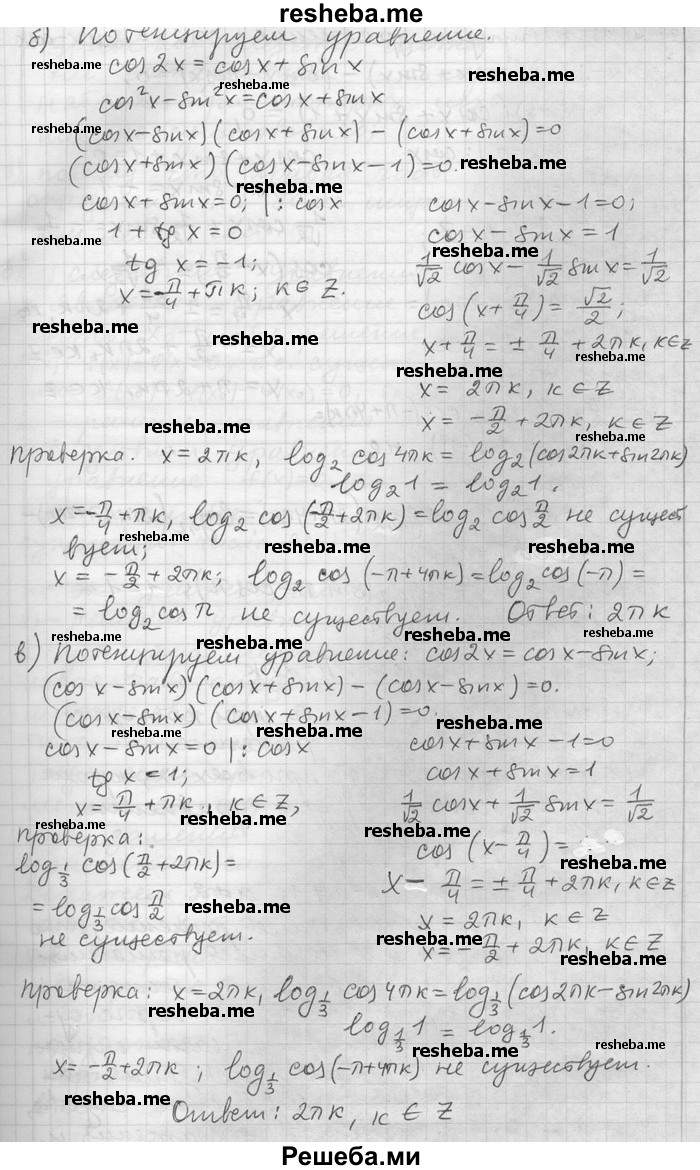 resheba.me
б) Потенцируем уравнение.
cos2x = cosx + sinx
cos²x - sin²x = cosx + sinx
(cosx - sinx)(cosx + sinx) - (cosx + sinx) = 0
(cosx + sinx)(cosx - sinx - 1) = 0.
cosx + sinx = 0; |: cosx
1 + tg x = 0
tg x = -1;
x = -π/4 + πk; k ∈ Z.
cosx - sinx - 1 = 0;
cosx - sinx = 1
1/√2 cosx - 1/√2 sinx = 1/√2
cos(x + π/4) = √2/2;
x + π/4 = ± π/4 + 2πk, k∈Z
x = 2πk, k ∈ Z
x = -π/2 + 2πk, k ∈ Z
Проверка. x = 2πk, log₂ cos4πk = log₂(cos2πk + sin2πk)
log₂1 = log₂1.
x = -π/4 + πk, log₂ cos(-π/2 + 2πk) = log₂ cos π/2 не сущест
вует;
x = -π/2 + 2πk; log₂ cos(-π + 4πk) = log₂cos(-π) =
= log₂cosπ не существует. Ответ: 2πk
в) Потенцируем уравнение: cos2x = cosx - sinx;
(cosx - sinx)(cosx + sinx) - (cosx - sinx) = 0.
(cosx - sinx)(cosx + sinx - 1) = 0.
cosx - sinx = 0 |: cosx
tg x = 1;
x = π/4 + πk, k ∈ Z,
Проверка:
log_{1/3} cos(π/2 + 2πk) =
= log_{1/3} cos π/2
не существует.
cosx + sinx - 1 = 0
cosx + sinx = 1
1/√2 cosx + 1/√2 sinx = 1/√2
cos(x - π/4) =
x - π/4 = ± π/4 + 2πk, k∈Z
x = 2πk, k ∈ Z
x = -π/2 + 2πk, k ∈ Z
Проверка: x = 2πk, log_{1/3} cos4πk = log_{1/3}(cos2πk - sin2πk)
log_{1/3} 1 = log_{1/3} 1.
x = -π/2 + 2πk; log_{1/3} cos(-π + 4πk) не существует.
Ответ: 2πk, k ∈ Z
Решеба.ми